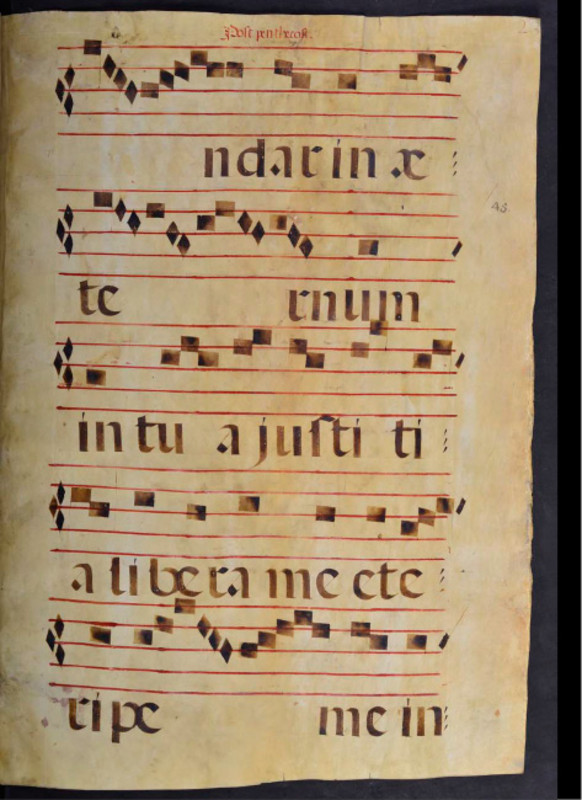 Post pentecost.
ndar in æ
48.
te rnum
in tu a justi ti
a libera me et e
ripe me in